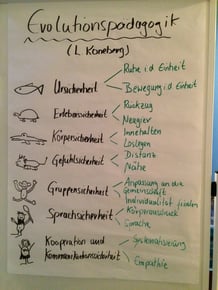 Evolutionspädagogik
(L. Koneberg)
Ursicherheit
Ruhe i.d. Einheit
Bewegung i.d. Einheit
Erlebenssicherheit
Rückzug
Neugier
Körpersicherheit
Innehalten
Loslegen
Gefühlssicherheit
Distanz
Nähe
Gruppensicherheit
Anpassung an die
Gemeinschaft
Individualität
Sprachsicherheit
Körperausdruck
Sprache
Kooperation und
Kommunikationssicherheit
Systematisierung
Empathie